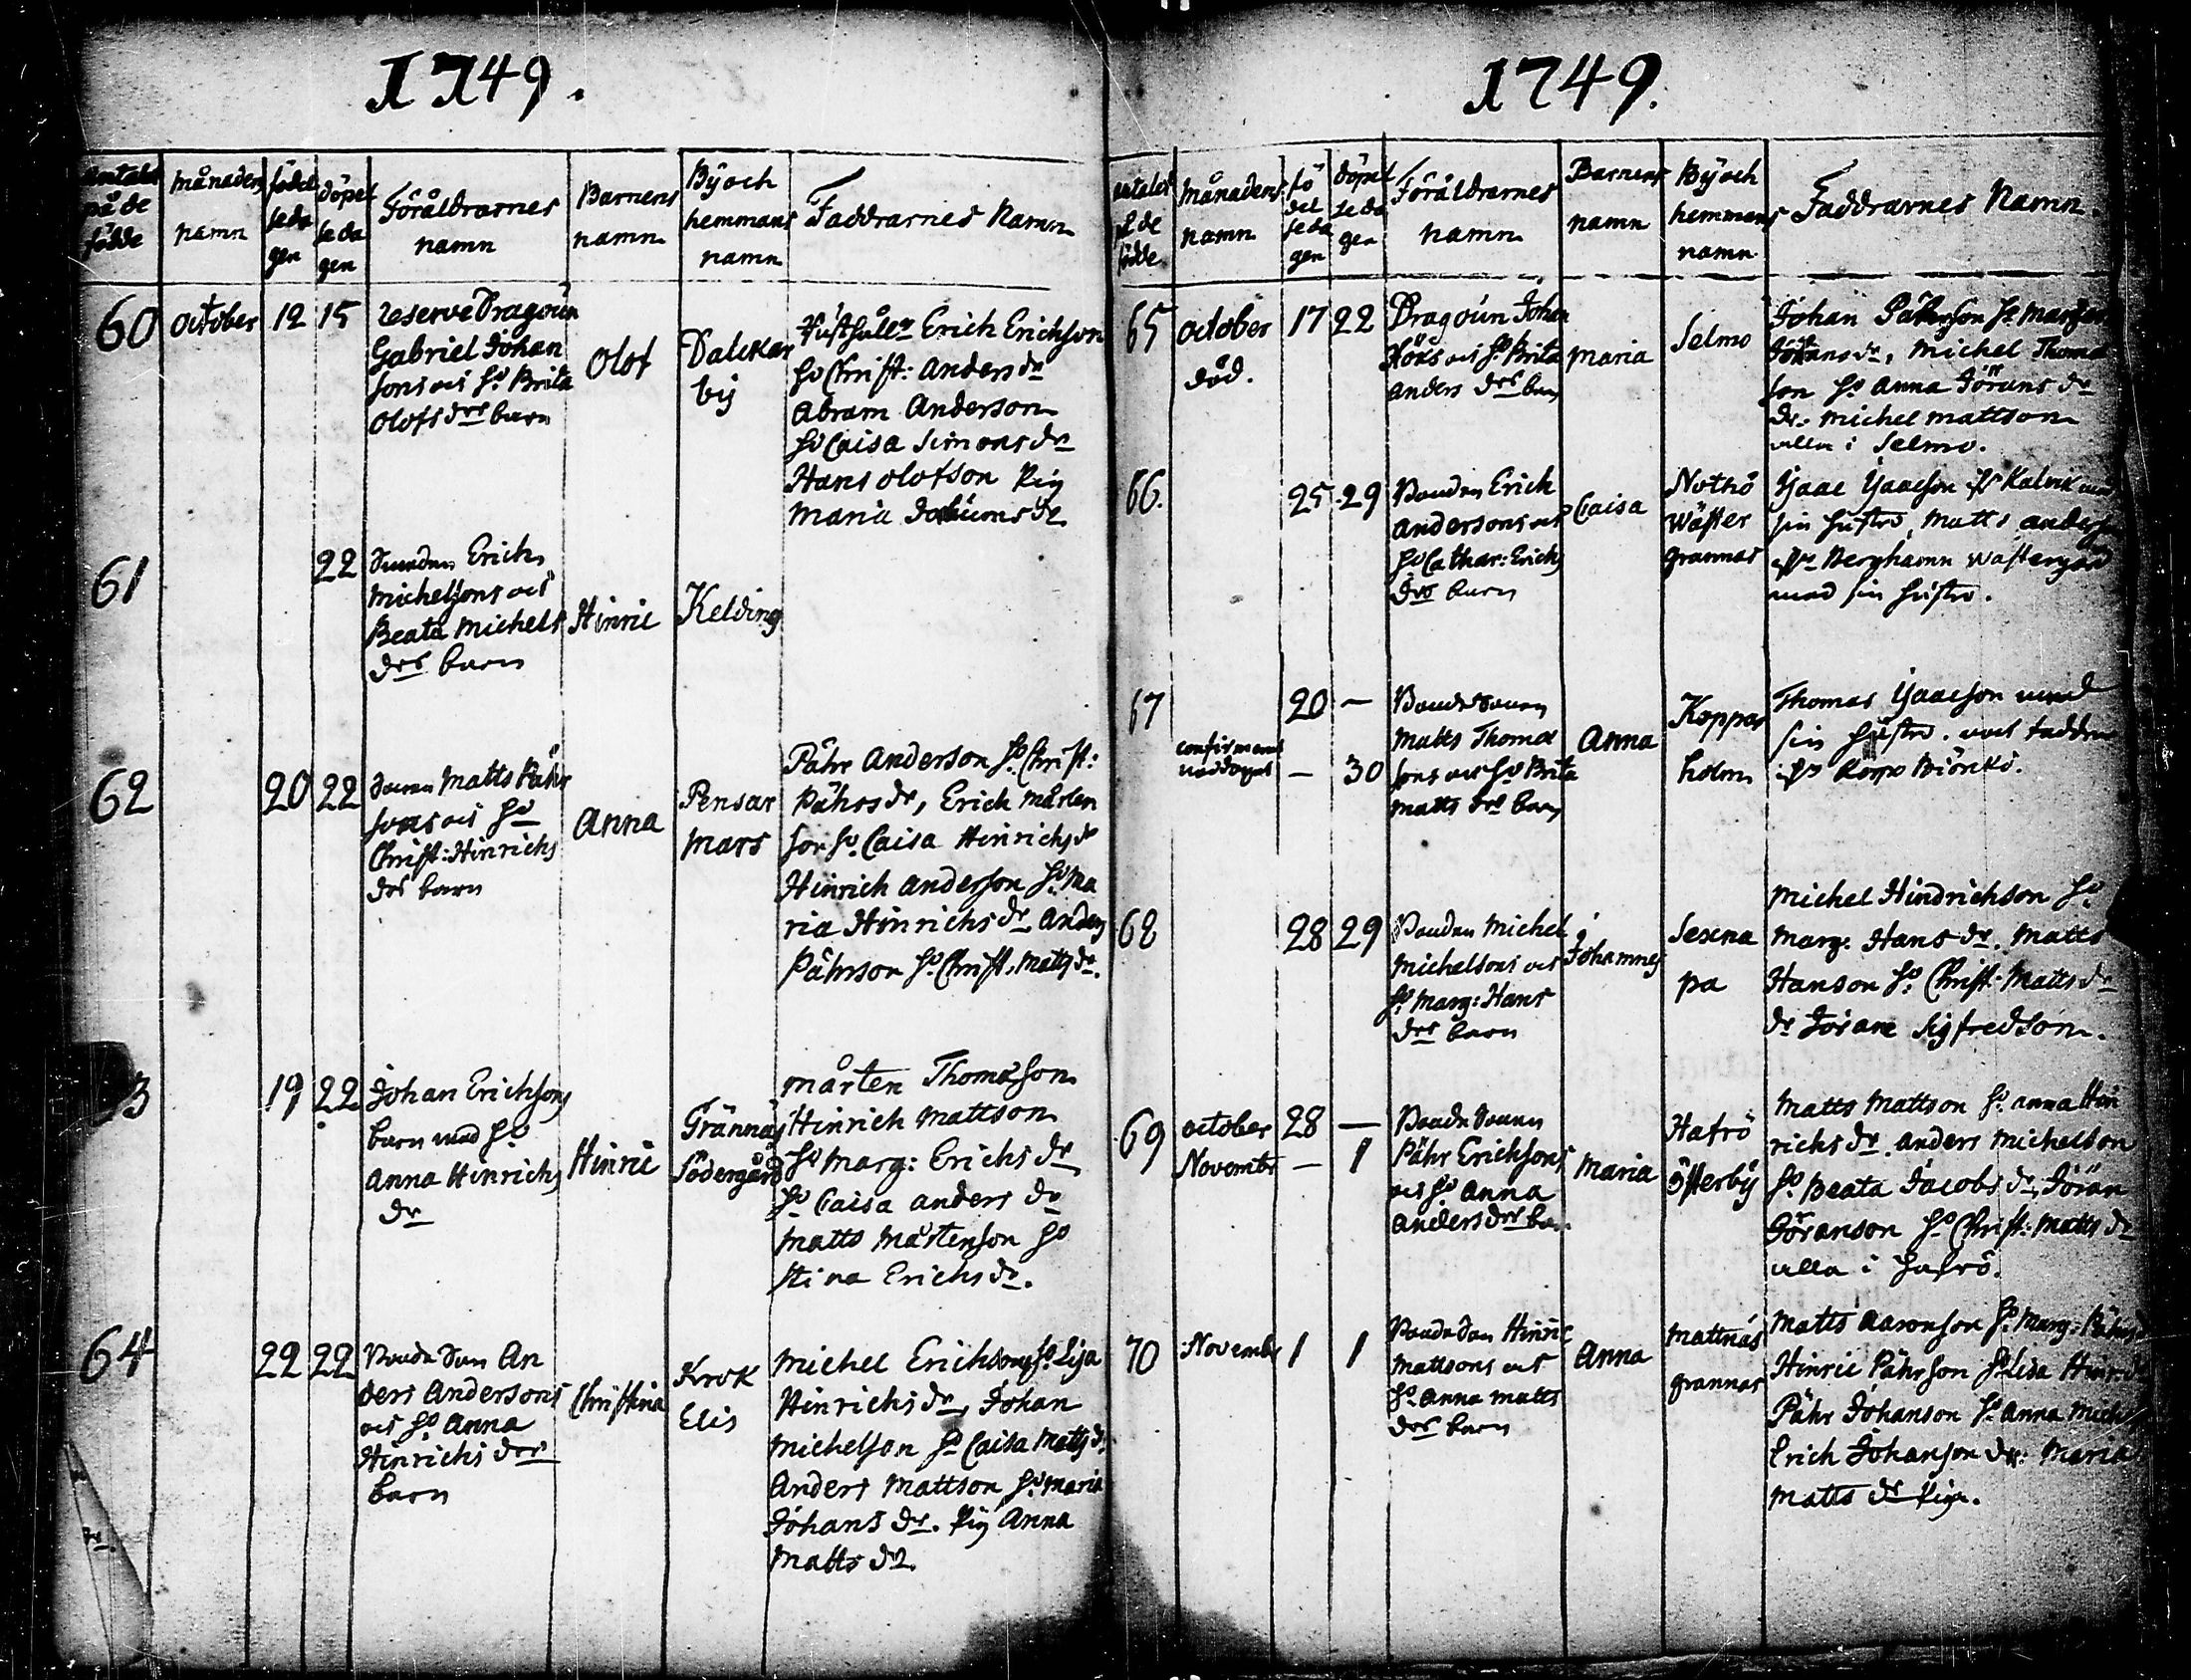 1749.
antalet på de födde
månadens namn
födelsedagen
döpelsedagen
Föräldrarnes namn
Barnens namn
By och hemmans namn
Faddrarnes Namn
60 october 12 15
reserve Dragoun
Gabriel Johan
sons och h:o Brita
Olofs drs barn
Olof
Dalckar
by
Erich Erichson
h:o Christ: Anders dr
Abram Anderson
h:o Caisa Simons dr
Hans Olofson Pig
Maria
61 22
Erich
Michelsons och
Beata Michels
drs barn
Hinric
Kelding
62 20 22
Matts Pährs
sons och h:o
Christ: Hinrichs
drs barn
Anna
Pensar
mars
Pähr Anderson h:o Christ:
Pährs dr, Erich Mårten
son h:o Caisa Hinrichs dr
Hinrich Anderson h:o Ma
ria Hinrichs dr Anders
Pährson h:o Christ. Matts dr.
3 19 22
Johan Erichsons
barn med h:o
Anna Hinrichs
dr
Hinric
Grännäs
Södergård
Mårten Thomason
Hinrich Mattson
h:o Marg: Erichs dr
h:o Caisa Anders dr
Matts Mårtenson h:o
Stina Erichs dr.
64 22 22
An
ders Andersons
och h:o Anna
Hinrichs drs
barn
Christina
Krok
Elis
Michel Erichson h:o Lisa
Hinrichs dr, Johan
Michelson h:o Caisa Matts dr,
Anders Mattson h:o Maria
Johans dr. Pig Anna
Matts dr.
1749.
antalet på de födde
Månadens namn
födelsedagen
döpelsedagen
Föräldrarnes namn
Barnens namn
By och hemmans namn
Faddrarnes Namn.
65 october 17 22
död.
Dragoun Johan
Höks och h:o Brita
Anders drs barn
Maria
Selmo
Johan h:o
Michel Thoma
son h:o Anna Jörans dr
dr. Michel Mattson
alla i Selmo.
66. 25 29
Bonden Erich
Andersons och
h:o Cathar: Erichs
drs barn
Caisa
Nothö
Wäster
grannas
Isaac Isaacson ifr Kalvik med
sin hustro, Matts Anderson
ifr Berghamn Wästergård
med sin hustro.
67 20 —
confirmerat
— 30
Matts Thoma
sons och h:o Brita
Matts drs barn
Anna
Koppar
holm
Thomas Isaacson med
sin hustro.
ifr Korpo Biörkö.
68 28 29
Bonden Michel
Michelsons och
h:o Marg: Hans
drs barn
Johannes
Sexna
pa
Michel Hindrichson h:o
Marg. Hans dr. Matts
Hanson h:o Christ: Matts dr
dr Jöran Sigfredson.
69 october 28 —
Novembr — 1
Pähr Erichsons
och h:o Anna
Anders drs barn
Maria
Hafrö
Österby
Matts Mattson h:o Anna Hin
richs dr. Anders Michelson
h:o Beata Jacobs dr, Jöran
Göranson h:o Christ: Matts dr
alla i Hafrö.
70 November 1 1
Hinric
Mattsons och
h:o Anna Matts
drs barn
Anna
Mattnäs
grannas
Matts Aaronson h:o Marg: Pährs
Hinric Pährson h:o Lisa Hinr: dr
Pähr Johanson h:o Anna Mich
Erich Johanson dr: Maria
Matts dr Piga.